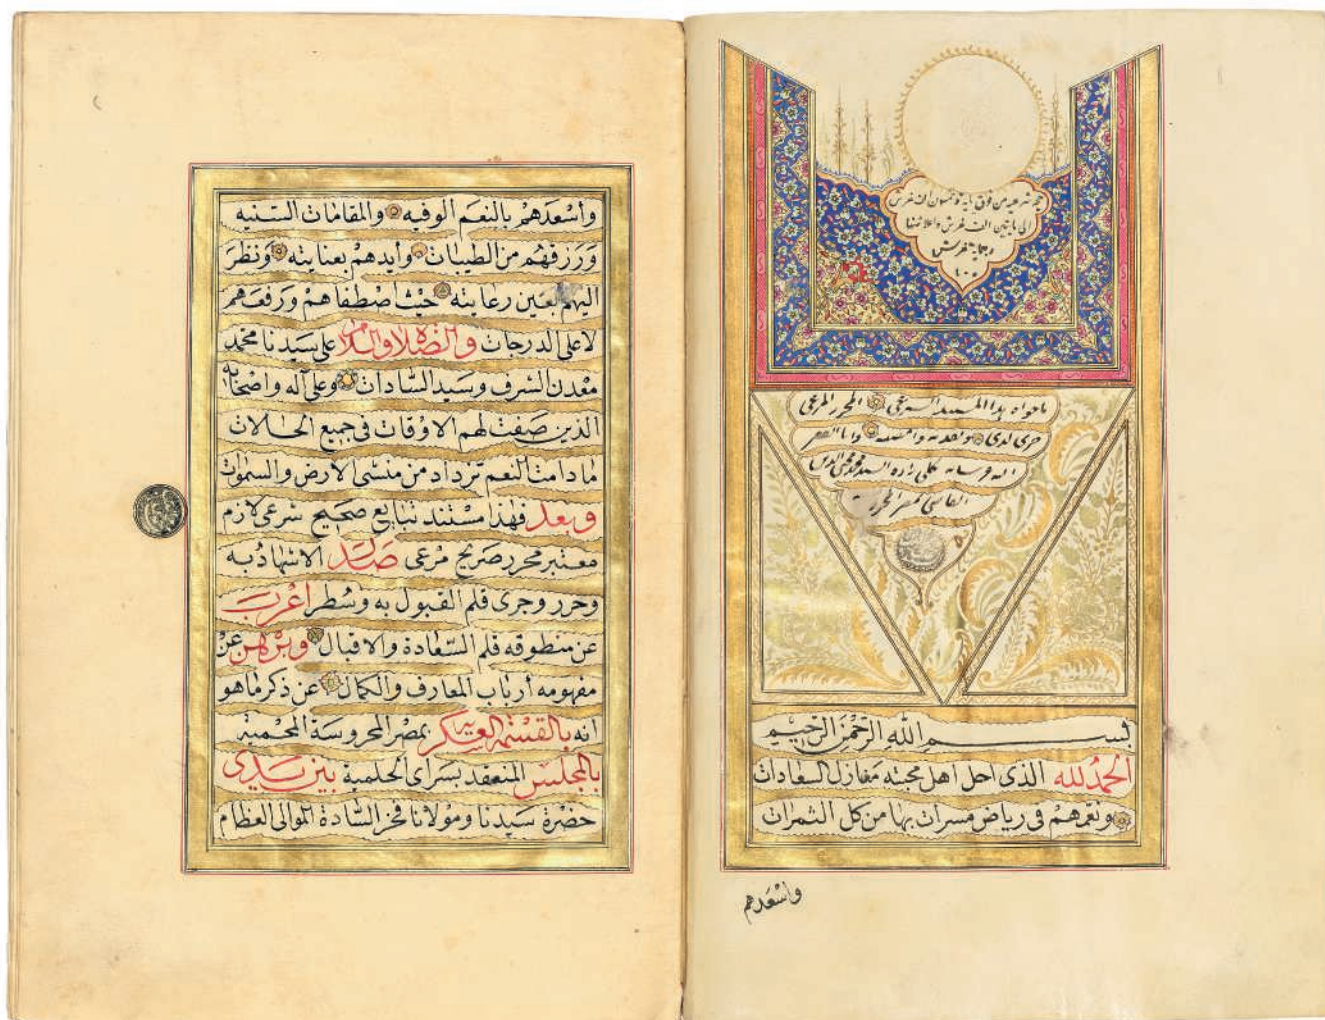 حجة شرعية من فوق مائة وخمسون الف غرش
الى مايتين الف غرش
غرش
١٠٠
ما حواه هذا المستند الشرعي المحرر المرعي
جرى لدي
السيد محمد
القاضي بمصر المحروسة
بسم الله الرحمن الرحيم
الحمد لله الذى احل اهل محبته مغازل السعادات
ونعمهم فى رياض مسرات بها من كل الثمرات
واسعدهم
وأسعدهم بالنعم الوفيه والمقامات السنيه
ورزقهم من الطيبات وأيدهم بعنايته ونظر
اليهم بعين رعايته حيث اصطفاهم ورفعهم
لاعلى الدرجات والصلاة والسلام على سيدنا محمد
معدن الشرف وسيد السادات وعلى آله واصحابه
الذين صفت لهم الاوقات فى جميع الحالات
ما دامت النعم تزداد من منشئ الارض والسموات
وبعد فهذا مستند تبايع صحيح شرعى لازم
معتبر محرر صريح مرعى صدر الاشهاد به
وحرر وجرى قلم القبول به وسطر اعرب
عن منطوقه قلم السعادة والاقبال وبرهن عن
مفهومه أرباب المعارف والكمال عن ذكر ما هو
انه بالقسمة العسكرية بمصر المحروسة المحمية
بالمجلس المنعقد بسراى الحلمية بين يدى
حضرة سيدنا ومولانا فخر السادة الموالى العظام